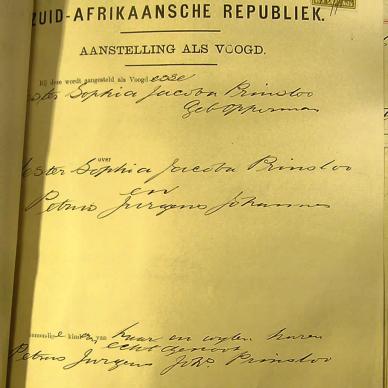 ZUID-AFRIKAANSCHE REPUBLIEK.
AANSTELLING ALS VOOGD.
Bij deze wordt aangesteld als Voogd esse
ester Sophia Jacoba Prinsloo
Geb Opperman
over
Hester Sophia Jacoba Prinsloo
en
Petrus Jurgens Johannes
kinderen van haar en wijlen haren
echtgenoot
Petrus Jurgens Johs Prinsloo